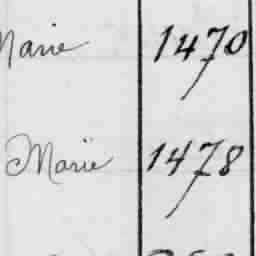 Marie 1470
Marie 1478